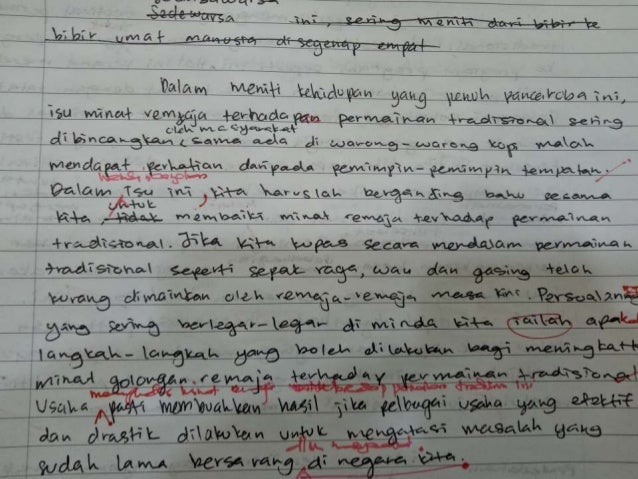 Sedewarsa ini, sering meniti dari bibir ke
bibir umat manusia di segenap empat
Dalam meniti kehidupan yang penuh pancaroba ini,
isu minat remaja terhadap permainan tradisional sering
oleh masyarakat
dibincangkan, sama ada di warong-warong kopi malah
mendapat perhatian daripada pemimpin-pemimpin tempatan.
Dalam isu ini, kita haruslah berganding bahu sesama
untuk
kita tidak membaiki minat remaja terhadap permainan
tradisional. Jika kita kupas secara mendalam permainan
tradisional seperti sepak raga, wau dan gasing telah
kurang dimainkan oleh remaja-remaja masa kini. Persoalan
yang sering berlegar-legar di minda kita ialah apakah
langkah-langkah yang boleh dilakukan bagi meningkatk
minat golongan remaja terhadap permainan tradisional
Usaha pasti membuahkan hasil jika pelbagai usaha yang efektif
dan drastik dilakukan untuk mengatasi masalah yang
sudah lama bersarang di negara kita.